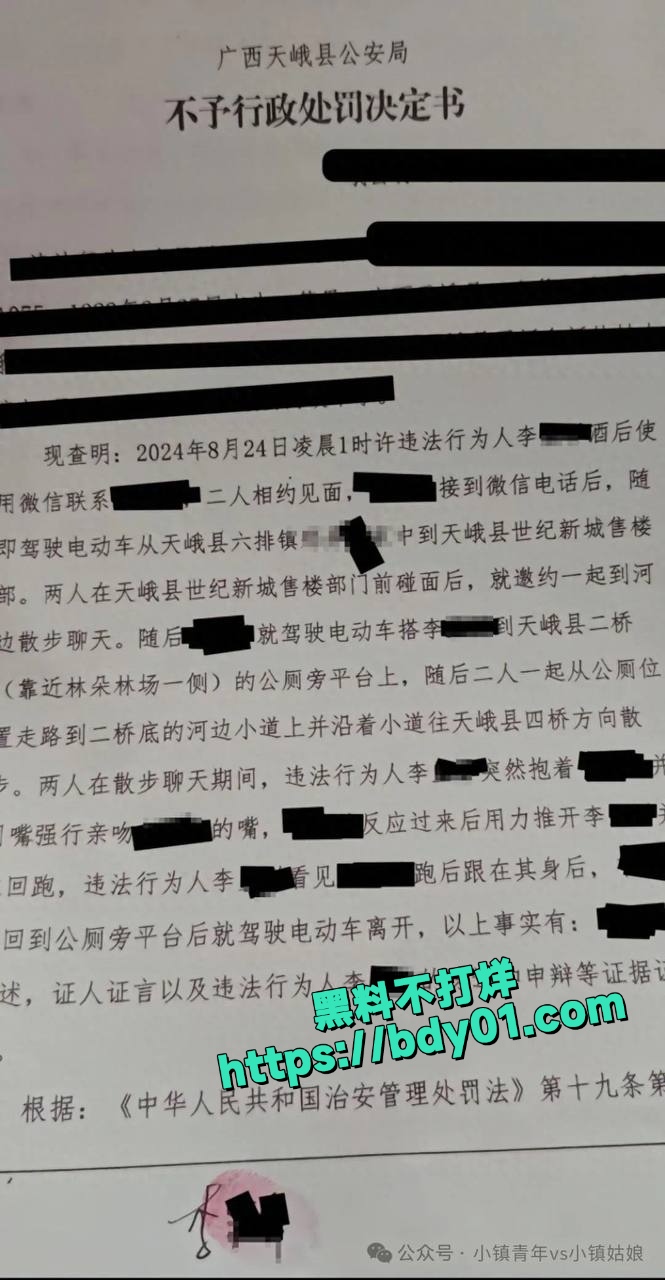 广西天峨县公安局
不予行政处罚决定书
现查明：2024年8月24日凌晨1时许违法行为人李 酒后使
用微信联系 ，二人相约见面， 接到微信电话后，随
即驾驶电动车从天峨县六排镇 中到天峨县世纪新城售楼
部。两人在天峨县世纪新城售楼部门前碰面后，就邀约一起到河
边散步聊天。随后 就驾驶电动车搭李 到天峨县二桥
（靠近林朵林场一侧）的公厕旁平台上，随后二人一起从公厕位
置走路到二桥底的河边小道上并沿着小道往天峨县四桥方向散
步。两人在散步聊天期间，违法行为人李 突然抱着 并
嘴强行亲吻 的嘴， 反应过来后用力推开李
回跑，违法行为人李 看见 跑后跟在其身后，
回到公厕旁平台后就驾驶电动车离开，以上事实有：
述，证人证言以及违法行为人李 申辩等证据证
。
黑料不打烊
https://bdy01.com
根据：《中华人民共和国治安管理处罚法》第十九条第
李
公众号·小镇青年vs小镇姑娘